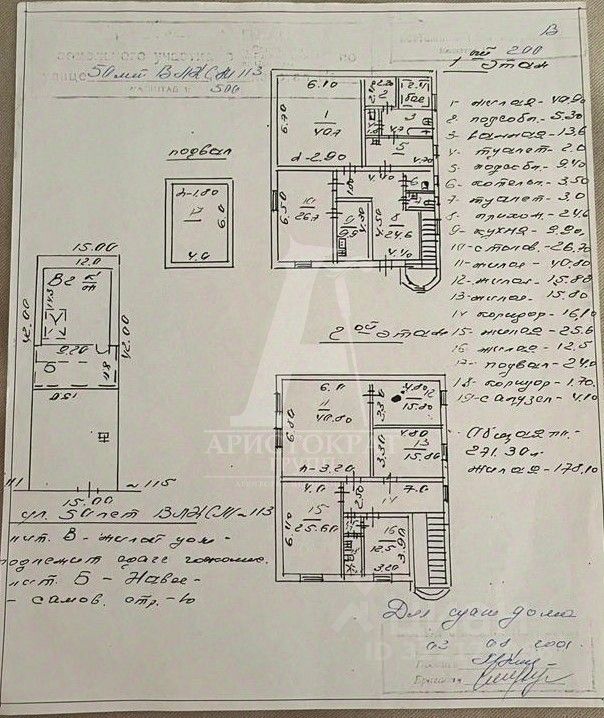 В
1 ой этаж
200
50 лет ВЛКСМ 113
МАСШТАБ 1: 500
подвал
h-1.80
17
6.0
4.0
6.10
6.70
1
40.7
h-2.90
2
5
4.70
6.50
10
26.7
9
9.9
4.50
8
24.6
4.10
6
1- жилая - 40.90
2 подсобн. - 5.30
3- ванная - 13.6
4- туалет - 2.0
5- подсобн. - 9.40
6- котельн. - 3.50
7- туалет - 3.0
8- прихож. - 24.6
9- кухня - 9.90
10- столов. - 26.70
11- жилая - 40.80
12- жилая - 15.88
13- жилая - 15.80
14 коридор - 16.10
15- жилая - 25.6
16 жилая - 12.5
17- подвал - 24.0
18- коридор - 1.70
19- санузел - 4.10
Общая пл. -
271.30
жилая - 178.10
15.00
12.0
В2
42.00
42.00
9.20
Б
15.00
~ 115
ул. 50 лет ВЛКСМ ~ 113
лит. В - жилой дом -
подлежит сдаче
лит. Б - Навес -
- самов. стр. - во
2 ой этаж
6.0
6.80
11
40.80
h-3.20
4.80
12
15.80
3.30
4.80
13
15.80
3.30
4.0
15
25.60
6.40
2.50
14
7.0
16
12.5
3.20
3.90
АРИСТОКРАТ
ГРУПП
Для сдачи дома
02 08 2001